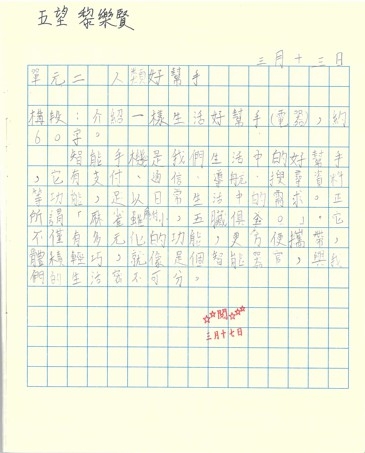 五望 黎樂賢
三月十三日
單元二 人類好幫手
構段：介紹一樣生活好幫手（電器），約
60字。
智能手機是我們生活中的好幫手
，它有支付、通信、導航、搜尋資料
等功能，足以日常生活中的需求。正
所謂「麻雀雖小，五臟俱全。」它
不僅有多元化的功能，更方便攜帶，
體積輕巧，就像是個智能管家，與我
們的生活密不可分。
閱
三月十七日